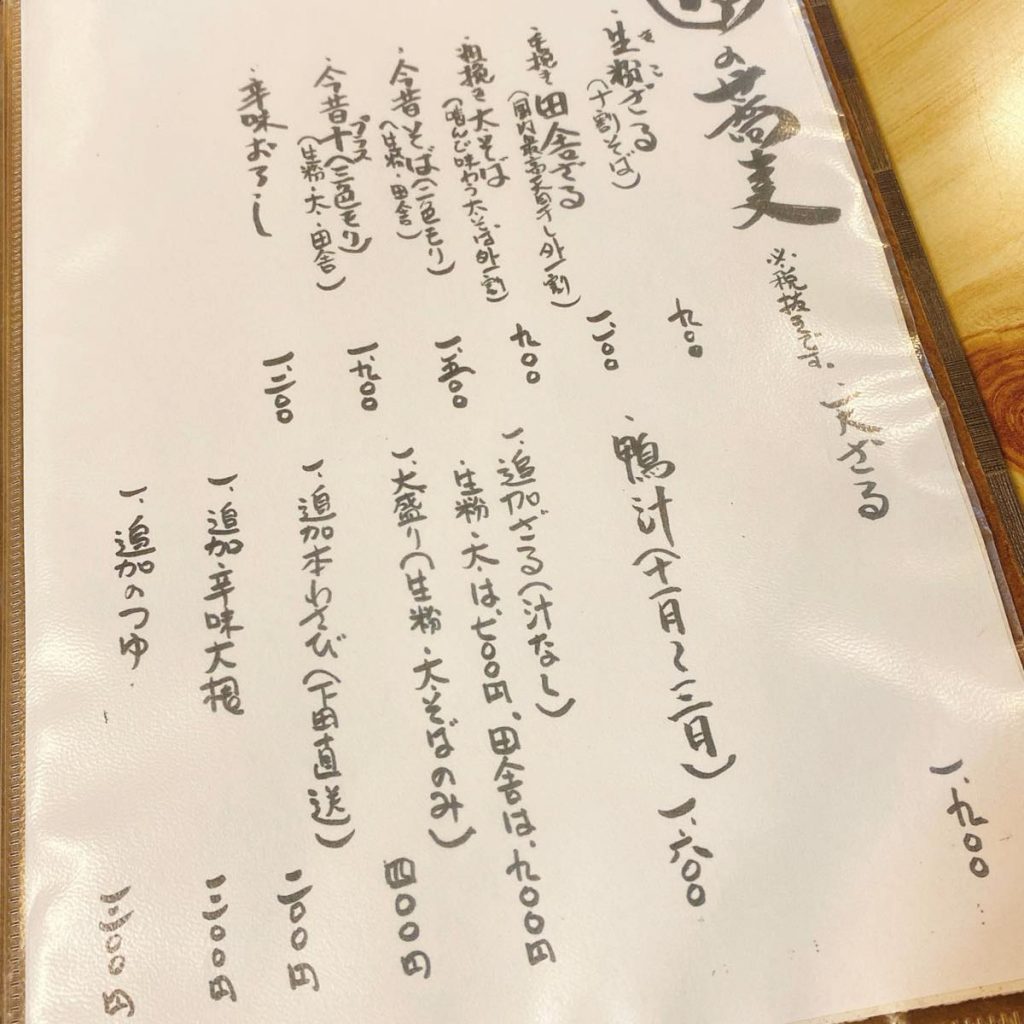 の蕎麦
※税抜きです。
・生粉ざる
きこ
(十割そば)
九〇〇
・手挽き田舎ざる
(国内最高天日干し外一割)
一、一〇〇
・粗挽き太そば
(噛んで味わう太そば外一割)
九〇〇
・今昔そば(二色モリ)
(生粉・田舎)
一、五〇〇
・今昔十(三色モリ)
プラス
(生粉・太・田舎)
一、九〇〇
・辛味おろし
一、二〇〇
・天ざる
一、九〇〇
・鴨汁(十一月〜三月)
一、六〇〇
一、追加ざる(汁なし)
生粉・太は、七〇〇円、田舎は、九〇〇円
一、大盛り(生粉・太そばのみ)
四〇〇円
一、追加本わさび(下田直送)
二〇〇円
一、追加辛味大根
三〇〇円
一、追加のつゆ
三〇〇円